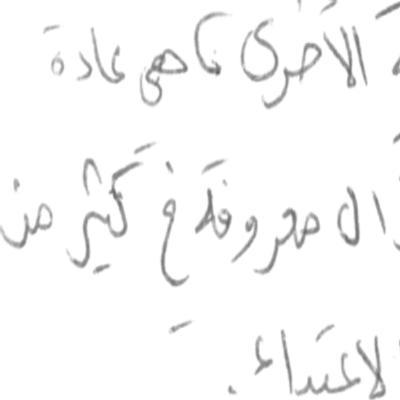 الأخرى كما هي عادة
المعروفة في كثير من
الاعتداء.